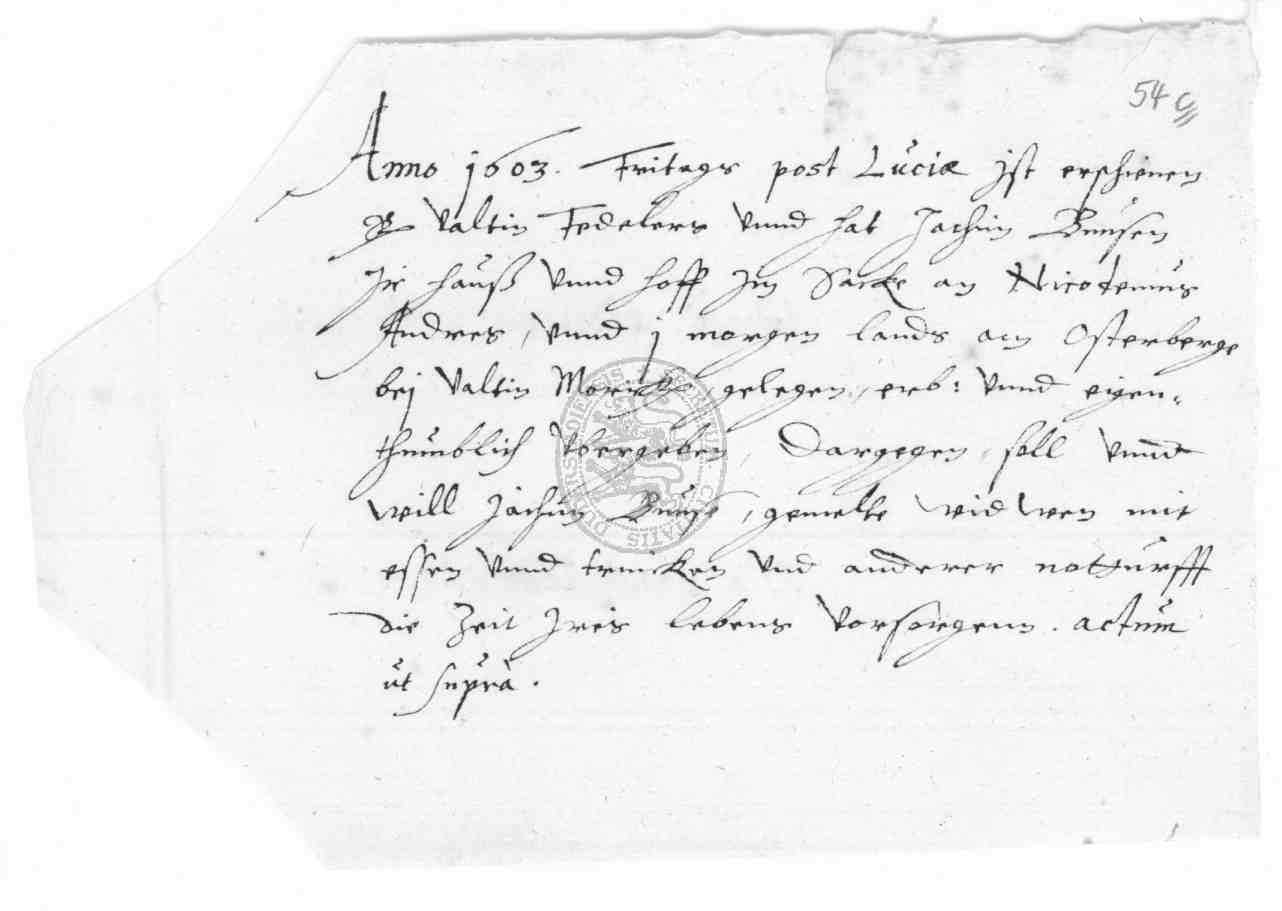 54 c
Anno 1603. Fritags post Luciæ ist erschienen
Valtin Fedelers vnnd hat Jachim Bunsen
Ir hauß vnnd hoff Im Sacke an Nicodemus
Andres, vnnd j morgen lands am Osterberge
bej Valtin Moritz gelegen, erb: vnnd eigen-
thumblich vbergeben, Dargegen soll vnnd
will Jachim Bunse, gemelte widwen mit
essen vnnd trincken vnd anderer notturfft
die Zeit Ires lebens vorsorgenn. actum
ut suprà.